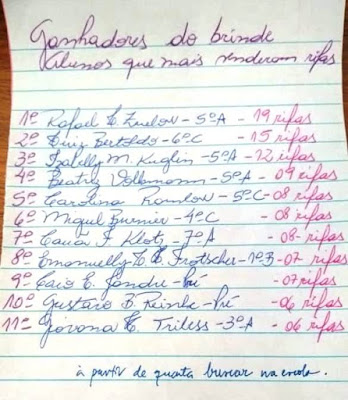 Ganhadores do brinde
Alunos que mais venderam rifas
1º Rafael E. Zuelow - 5ºA - 19 rifas
2º Luiz Bertoldo - 6ºC - 15 rifas
3º Izabelly M. Kuglin - 5ºA - 12 rifas
4º Beatriz Volkmann - 5ºA - 09 rifas
5º Carolina - 5ºC - 08 rifas
6º Miguel - 4ºC - 08 rifas
7º Cauã F. Klotz - 7ºA - 08 - rifas
8º Emanuelly Frotscher - 1º3 - 07 rifas
9º Caio E. Jandre - Pré - 07 rifas
10º Gustavo B. Reinke - Pré - 06 rifas
11º Giovana E. Trites - 3ºA - 06 rifas
à partir de quarta buscar na escola.